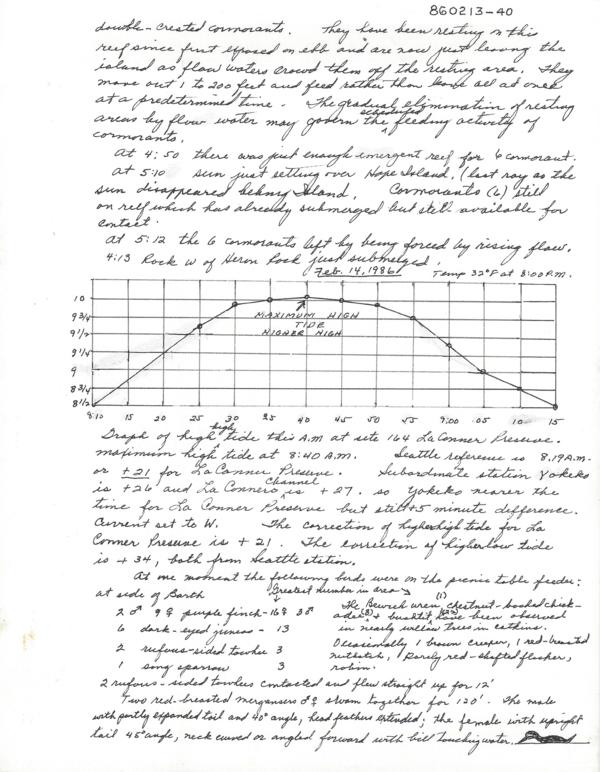 860213-40
double-crested cormorants. They have been resting on this
reef since first exposed on ebb and are now just leaving the
island as flow waters crowd them off the resting area. They
move out 1 to 200 feet and feed rather than leave all at once
at a predetermined time. The gradual elimination of resting
areas by flow water may govern the scheduled feeding activity of
cormorants.
At 4:50 there was just enough emergent reef for 6 cormorant.
At 5:10 sun just setting over Hope Island, (last ray as the
sun disappeared behind Island. Cormorants (6) still
on reef which has already submerged but still available for
contact.
At 5:12 the 6 cormorants left by being forced by rising flow.
4:13 Rock W of Heron Rock just submerged.
Feb. 14, 1986 Temp 32°F at 8:00 P.M.
10
9 3/4
9 1/2
9 1/4
9
8 3/4
8 1/2
MAXIMUM HIGH
TIDE
HIGHER HIGH
8:10 15 20 25 30 35 40 45 50 55 9:00 05 10 15
Graph of high high tide this A.M at site 164 LaConner Preserve.
maximum high tide at 8:40 A.M. Seattle reference is 8.19 A.M.
or +21 for LaConner Preserve. Subordinate station Yokeko
is +26 and LaConner Channel is +27. so Yokeko nearer the
time for La Conner Preserve but still +5 minute difference.
Current set to W. The correction of higher high tide for La
Conner Preserve is +21. The correction of higher low tide
is +34, both from Seattle station.
At one moment the following birds were on the picnic table feeder:
at side of Barth Greatest number in area
2 ♂ 9 ♀ purple finch - 16 ♀ 3 ♂
6 dark-eyed juncos - 13
2 rufous-sided towhee 3
1 song sparrow 3
The Bewick wren (1), chestnut-backed chick-
adee (3), & bushtit (22) have been observed
in nearby willow trees in catkins.
Occasionally 1 brown creeper, 1 red-breasted
nuthatch, Rarely red-shafted flicker,
robin.
2 rufous-sided towhees contacted and flew straight up for 12'
Two red-breasted mergansers ♂♀ swam together for 120'. The male
with partly expanded tail and 40° angle, head feathers extended; the female with upright
tail 45° angle, neck curved or angled forward with bill touching water.